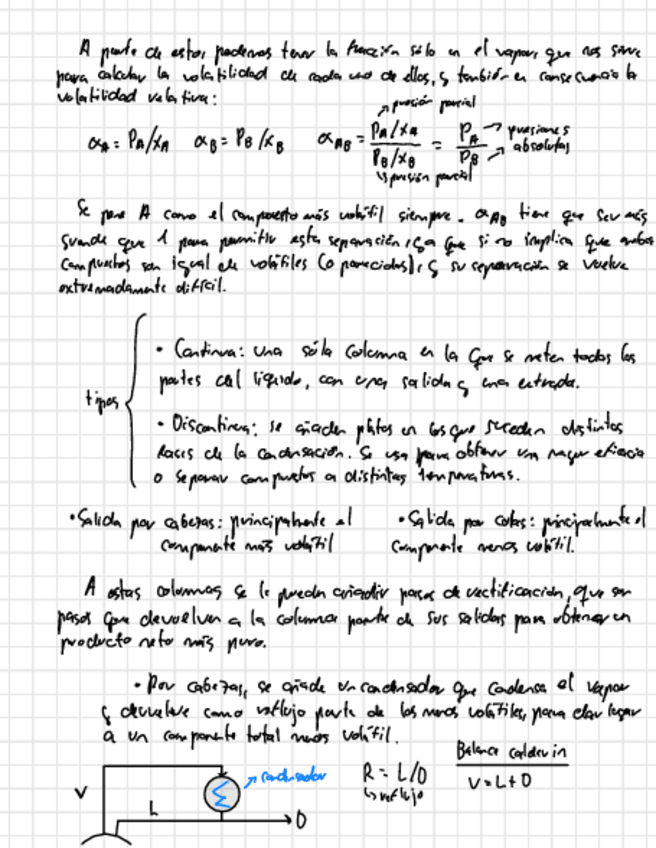 A parte de estos, podemos tener la fracción sólo en el vapor, que nos sirve
para calcular la volatilidad de cada uno de ellos, y también en consecuencia la
volatilidad relativa:
→ presión parcial
α_A = P_A/x_A   α_B = P_B/x_B   α_AB = (P_A/x_A)/(P_B/x_B) = P_A/P_B → presiones absolutas
↳ presión parcial
Se pone A como el compuesto más volátil siempre. α_AB tiene que ser más
grande que 1 para permitir esta separación, ya que si no implica que ambos
compuestos son igual de volátiles (o parecidos), y su separación se vuelve
extremadamente difícil.
tipos
• Continua: una sóla columna en la que se meten todas las
partes del líquido, con una salida y una entrada.
• Discontinua: se añaden platos en los que suceden distintas
fases de la condensación. Se usa para obtener una mayor eficacia
o separar compuestos a distintas temperaturas.
• Salida por cabezas: principalmente el
componente más volátil
• Salida por colas: principalmente el
componente menos volátil.
A estas columnas se le pueden añadir pasos de rectificación, que son
pasos que devuelven a la columna parte de sus salidas para obtener un
producto neto más puro.
• Por cabezas, se añade un condensador que condensa el vapor
y devuelve como reflujo parte de los menos volátiles, para dar lugar
a un componente total menos volátil.
→ condensador
V
L
D
R = L/D
↳ reflujo
Balance calderín
V = L + D